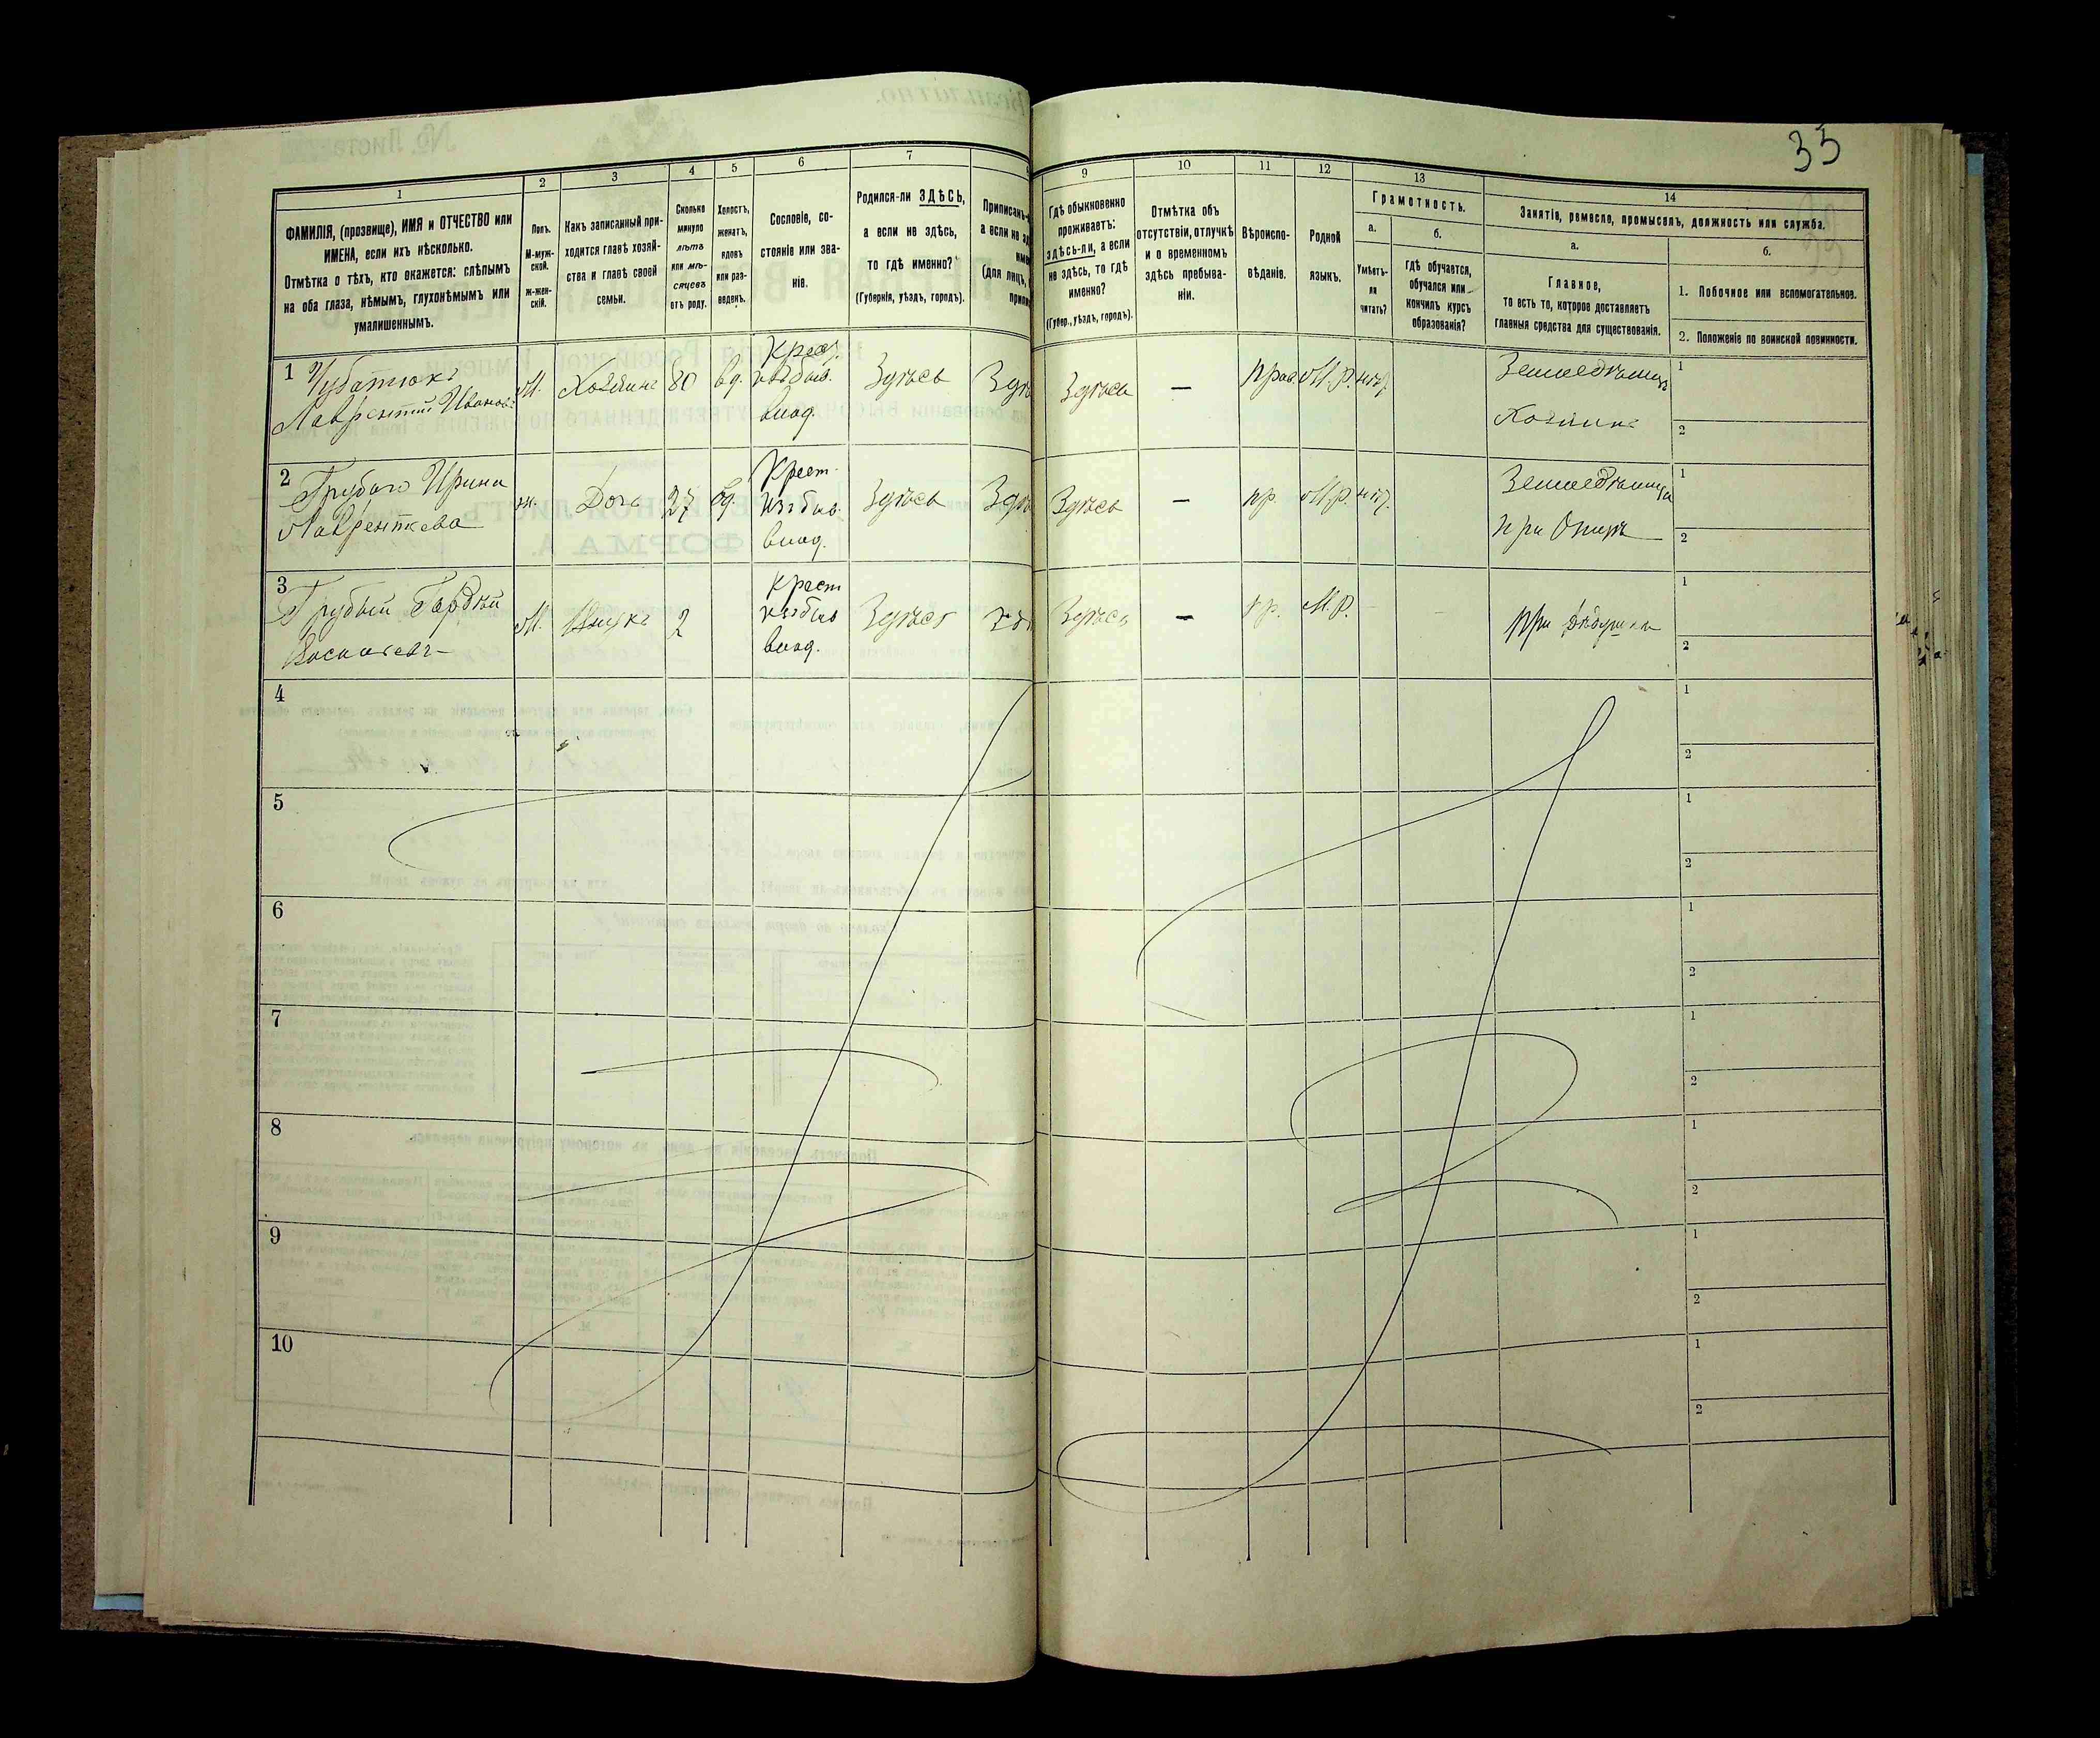 33
1
2
3
4
5
6
7
9
10
11
12
13
14
ФАМИЛІЯ, (прозвище), ИМЯ и ОТЧЕСТВО или
ИМЕНА, если ихъ нѣсколько.
Отмѣтка о тѣхъ, кто окажется: слѣпымъ
на оба глаза, нѣмымъ, глухонѣмымъ или
умалишеннымъ.
Полъ.
М-муж-
ской.
ж-жен-
скій.
Какъ записанный при-
ходится главѣ хозяй-
ства и главѣ своей
семьи.
Сколько
минуло
лѣтъ
или мѣ-
сяцевъ
отъ роду.
Холостъ,
женатъ,
вдовъ
или раз-
веденъ.
Сословіе, со-
стояніе или зва-
ніе.
Родился-ли ЗДѢСЬ,
а если не здѣсь,
то гдѣ именно?
(Губернія, уѣздъ, городъ).
Гдѣ обыкновенно
проживаетъ:
здѣсь-ли, а если
не здѣсь, то гдѣ
именно?
(Губер., уѣздъ, городъ).
Отмѣтка объ
отсутствіи, отлучкѣ
и о временномъ
здѣсь пребыва-
ніи.
Вѣроиспо-
вѣданіе.
Родной
языкъ.
Грамотность.
а.
Умѣетъ-
ли
читать?
б.
гдѣ обучается,
обучался или
кончилъ курсъ
образованія?
Занятіе, ремесло, промыселъ, должность или служба.
а.
Главное,
то есть то, которое доставляетъ
главныя средства для существованія.
б.
1. Побочное или вспомогательное.
2. Положеніе по воинской повинности.
1 Чубатюкъ
Лаврентій Иванов.
М. Хозяинъ 80 вд.
Крест.
изъ быв.
влад.
Здѣсь
Здѣсь
—
прав. М.р. нѣт.
Земледѣлецъ
Хозяинъ
1
2
2 Грубаго Ирина
Лаврентьева
ж. Дочь 27 вд.
Крест.
изъ быв.
влад.
Здѣсь
Здѣсь
—
пр. М.р. нѣт.
Земледѣлица
при Отцѣ
1
2
3
Грубый Гордѣй
М. Внукъ 2
Крест
изъ быв
влад.
Здѣсь
Здѣсь
—
пр. М.р.
при дѣдушкѣ
1
2
4
1
2
5
1
2
6
1
2
7
1
2
8
1
2
9
1
2
10
1
2